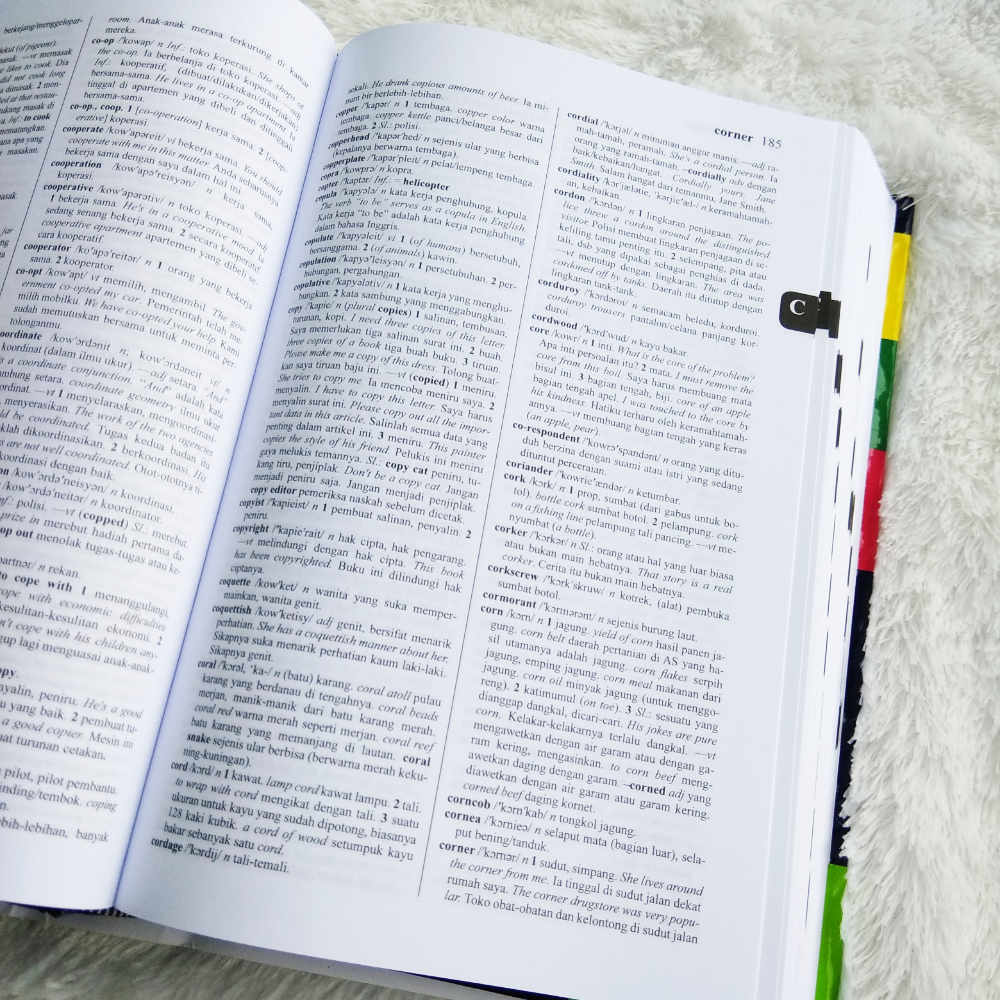 berkejang/menggelepar-
(of pigeon).
—vt memasak
likes to cook. Dia
did not cook long
a dimasak. 2 men-
at that restau-
masak di
to cook
mematangkan.
apa yang
masakan.
room. Anak-anak merasa terkurung di kamar
mereka.
co-op /'kowap/ n Inf.: toko koperasi. She shops at
the co-op. Ia berbelanja di toko koperasi. —adj
Inf.: kooperatif, (dibuat/dilakukan/dikerjakan)
bersama-sama. He lives in a co-op apartment. Ia
tinggal di apartemen yang dibeli dan ditempati
bersama-sama.
co-op., coop. 1 [co-operation] kerja sama. 2 [coop-
erative] koperasi
cooperate /kow'apəreit/ vi bekerja sama. You should
cooperate with me in this matter. Anda seharusnya
bekerja sama dengan saya dalam hal ini.
cooperation /kow'apə'reisyən/ n kerja sama,
koperasi.
cooperative /kow'apərətiv/ n toko koperasi. —adj
1 bekerja sama. He's in a cooperative mood. Ia
sedang senang bekerja sama. 2 secara kooperatif.
cooperative apartment apartemen yang dibeli se-
cara kooperatif.
cooperator /ko'apə'reitər/ n 1 orang yang bekerja
sama. 2 kooperator.
co-opt /kow'apt/ vt memilih, mengambil. The gov-
ernment co-opted my car. Pemerintah telah me-
milih mobilku. We have co-opted your help. Kami
sudah memutuskan bersama untuk meminta per-
tolonganmu.
oordinate /kow'ərdənit n; kow'ərdəneit v/ n
koordinat (dalam ilmu ukur). —adj setara. "And"
is a coordinate conjunction. "And" adalah kata
ambung setara. coordinate geometry ilmu ukur
ordinat. —vt 1 menyelaraskan, mengkoordinasi-
, menyerasikan. The work of the two agencies
ld be coordinated. Tugas kedua badan itu
klah dikoordinasikan. 2 berkoordinasi. His
es are not well coordinated. Otot-ototnya ti-
koordinasi dengan baik.
on /kow'ərdə'neisyən/ n koordinasi.
/kow'ərdə'neitər/ n koordinator.
nf.: polisi. —vt (copped) SL.: merebut.
prize in merebut hadiah pertama da-
op out menolak tugas-tugas atau ke-
artnər/ n rekan.
to cope with 1 menanggulangi,
ope with economic difficulties
kesulitan-kesulitan ekonomi. 2
n't cope with his children any-
up lagi menguasai anak-anak-
py.
yalin, peniru. He's a good
u yang baik. 2 pembuat tu-
a good copier. Mesin ini
uat turunan cetakan.
pilot, pilot pembantu.
inding/tembok. coping
n.
ebih-lebihan, banyak
sekali. He drank copious amounts of beer. Ia mi-
num bir berlebih-lebihan.
copper /'kapər/ n 1 tembaga. copper color warna
tembaga. copper kettle panci/belanga besar dari
tembaga. 2 Sl.: polisi.
copperhead /'kapər'hed/ n sejenis ular yang berbisa
(kepalanya berwarna tembaga).
copperplate /'kapər'pleit/ n pelat/lempeng tembaga
copra /'kowprə/ n kopra.
copter /'kaptər/ Inf.: = helicopter
copula /'kapyələ/ n kata kerja penghubung, kopula.
The verb "to be" serves as a copula in English.
Kata kerja "to be" adalah kata kerja penghubung
dalam bahasa Inggris.
copulate /'kapyəleit/ vi 1 (of humans) bersetubuh,
bersanggama. 2 (of animals) kawin.
copulation /'kapyə'leisyən/ n 1 persetubuhan. 2 per-
hubungan, pergabungan.
copulative /'kapyələtiv/ n 1 kata kerja yang menghu-
bungkan. 2 kata sambung yang menggabungkan.
copy /'kapie/ n (plural copies) 1 salinan, tembusan,
turunan, kopi. I need three copies of this letter.
Saya memerlukan tiga salinan surat ini. 2 buah.
three copies of a book tiga buah buku. 3 tiruan.
Please make me a copy of this dress. Tolong buat-
kan saya tiruan baju ini. —vt (copied) 1 meniru.
She tries to copy me. Ia mencoba meniru saya. 2
menyalin. I have to copy this letter. Saya harus
menyalin surat ini. Please copy out all the impor-
tant data in this article. Salinlah semua data yang
penting dalam artikel ini. 3 meniru. This painter
copies the style of his friend. Pelukis ini meniru
gaya melukis temannya. SL.: copy cat peniru, tu-
kang tiru, penjiplak. Don't be a copy cat. Jangan
menjadi peniru saja. Jangan menjadi penjiplak.
copy editor pemeriksa naskah sebelum dicetak.
copyist /'kapieist/ n 1 pembuat salinan, penyalin. 2
peniru.
copyright /'kapie'rait/ n hak cipta, hak pengarang.
—vt melindungi dengan hak cipta. This book
has been copyrighted. Buku ini dilindungi hak
ciptanya.
coquette /kow'ket/ n wanita yang suka memper-
mainkan, wanita genit.
coquettish /kow'ketisy/ adj genit, bersifat menarik
perhatian. She has a coquettish manner about her.
Sikapnya suka menarik perhatian kaum laki-laki.
Sikapnya genit.
coral /'kɔrəl, 'ka-/ n (batu) karang. coral atoll pulau
karang yang berdanau di tengahnya. coral beads
merjan, manik-manik dari batu karang merah.
coral red warna merah seperti merjan. coral reef
batu karang yang memanjang di lautan. coral
snake sejenis ular berbisa (berwarna merah keku-
ning-kuningan).
cord /kɔrd/ n 1 kawat. lamp cord kawat lampu. 2 tali.
to wrap with cord mengikat dengan tali. 3 suatu
ukuran untuk kayu yang sudah dipotong, biasanya
128 kaki kubik. a cord of wood setumpuk kayu
bakar sebanyak satu cord.
cordage /'kɔrdij/ n tali-temali.
corner 185
cordial /'kɔrjəl/ n minuman anggur manis. —adj ra-
mah-tamah, peramah. She's a cordial person. Ia
orang yang ramah-tamah. —cordially adv dengan
baik/kebaikan/hangat. Cordially yours, Jane
Smith. Salam hangat dari temanmu, Jane Smith.
cordiality /kɔr'jælətie, 'kɔrjie'æl-/ n keramahtamah-
an, kebaikan.
cordon /'kɔrdən/ n 1 lingkaran penjagaan. The po-
lice threw a cordon around the distinguished
visitor. Polisi membuat lingkaran penjagaan di se-
keliling tamu penting itu. 2 selempang, pita atau
tali, dsb. yang dipakai sebagai penghias di dada.
—vt menutup dengan lingkaran. The area was
cordoned off by tanks. Daerah itu ditutup dengan
lingkaran tank-tank.
corduroy /'kɔrdərɔi/ n semacam beledu, korduroi.
corduroy trousers pantalon/celana panjang kor-
duroi.
cordwood /'kɔrd'wud/ n kayu bakar.
core /kowr/ n 1 inti. What is the core of the problem?
Apa inti persoalan itu? 2 mata. I must remove the
core from this boil. Saya harus membuang mata
bisul ini. 3 bagian tengah, biji. core of an apple
bagian tengah apel. I was touched to the core by
his kindness. Hatiku terharu oleh keramahtamah-
annya. —vt membuang bagian tengah yang keras
(an apple, pear).
co-respondent /'kowrə'spandənt/ n orang yang ditu-
duh berzina dengan suami atau istri yang sedang
dituntut perceraian.
coriander /'kowrie'ændər/ n ketumbar.
cork /kɔrk/ n 1 prop, sumbat (dari gabus untuk bo-
tol). bottle cork sumbat botol. 2 pelampung. cork
on a fishing line pelampung tali pancing. —vt me-
nyumbat (a bottle).
corker /'kɔrkər/ n Sl.: orang atau hal yang luar biasa
atau bukan main hebatnya. That story is a real
corker. Cerita itu bukan main hebatnya.
corkscrew /'kɔrk'skruw/ n kotrek, (alat) pembuka
sumbat botol.
cormorant /'kɔrmərənt/ n sejenis burung laut.
corn /kɔrn/ n 1 jagung. yield of corn hasil panen ja-
gung. corn belt daerah pertanian di AS yang ha-
sil utamanya adalah jagung. corn flakes serpih
jagung, emping jagung. corn meal makanan dari
jagung. corn oil minyak jagung (untuk menggo-
reng). 2 katimumul (on toe). 3 SL.: sesuatu yang
dianggap dangkal, dicari-cari. His jokes are pure
corn. Kelakar-kelakarnya terlalu dangkal. —vt
mengawetkan dengan air garam atau dengan ga-
ram kering, mengasinkan. to corn beef meng-
awetkan daging dengan garam. —corned adj yang
diawetkan dengan air garam atau garam kering.
corned beef daging kornet.
corncob /'kɔrn'kab/ n tongkol jagung.
cornea /'kɔrniea/ n selaput mata (bagian luar), sela-
put bening/tanduk.
corner /'kɔrnər/ n 1 sudut, simpang. She lives around
the corner from me. Ia tinggal di sudut jalan dekat
rumah saya. The corner drugstore was very popu-
lar. Toko obat-obatan dan kelontong di sudut jalan
C